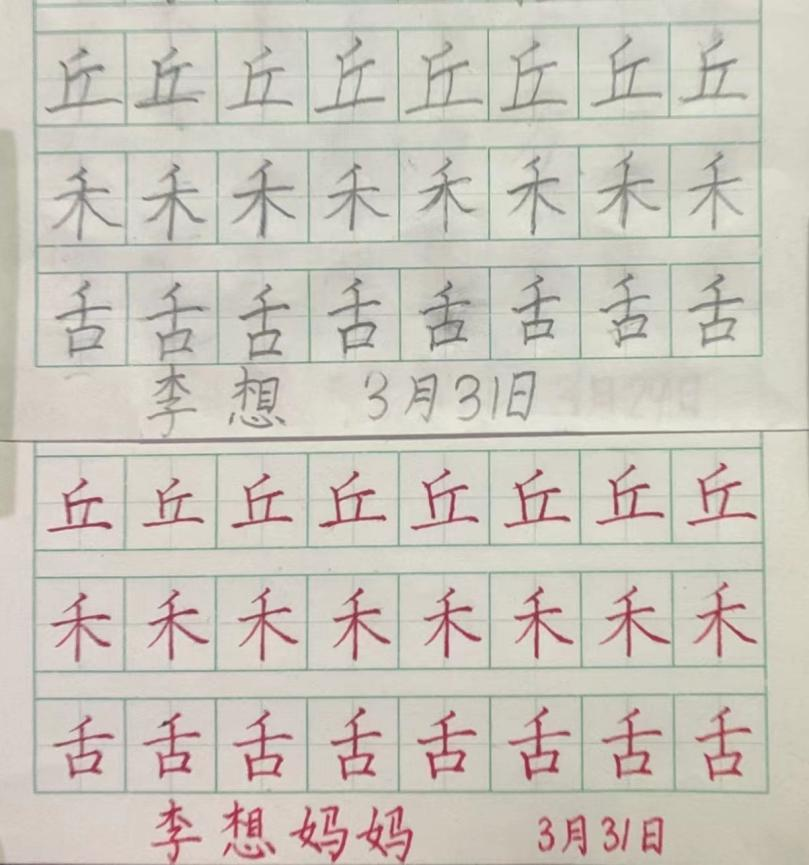 丘丘丘丘丘丘丘丘
禾禾禾禾禾禾禾禾
舌舌舌舌舌舌舌舌
李想 3月31日
丘丘丘丘丘丘丘丘
禾禾禾禾禾禾禾禾
舌舌舌舌舌舌舌舌
李想妈妈 3月31日